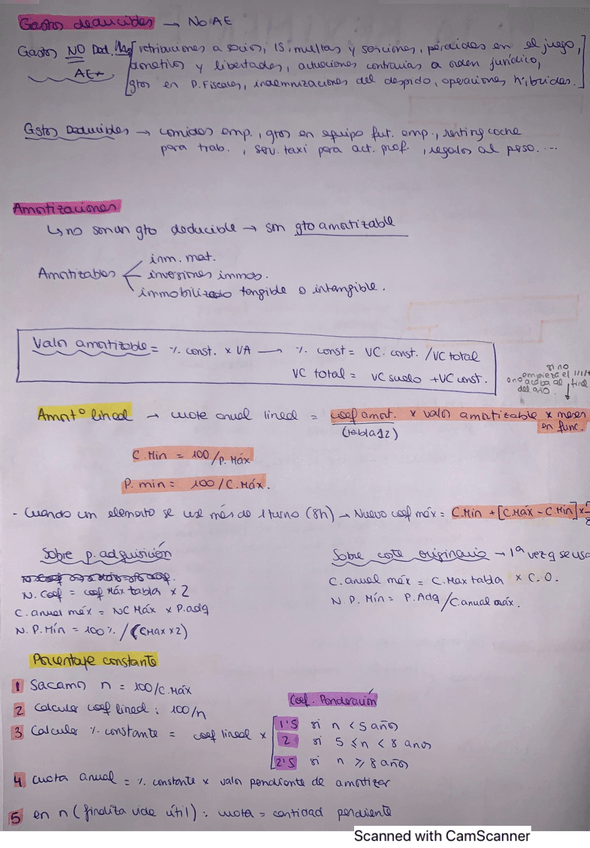 Gastos deducibles → No AE
Gastos NO Ded. [retribuciones a socios, IS, multas y sanciones, pérdidas en el juego,
AE+ donativos y libertades, actuaciones contrarias a orden jurídico,
gtos en P. Fiscales, indemnizaciones del despido, operaciones híbridas.]
Gstos Deducibles → comidas emp., gtos en equipo fut. emp., renting coche
para trab., serv. taxi para act. prof., regalos al peso....
Amortizaciones
↳ no son un gto deducible → son gto amortizable
Amortizables
inm. mat.
inversiones inmob.
inmobilizado tangible o intangible.
Valor amortizable = % const. x VA → % const = VC. const. / VC total
VC total = VC suelo + VC const.
si no
empieza el 1/1
o no acaba al final
del año
Amortº lineal → cuota anual lineal = coef amort. x valor amortizable x meses
(tabla 12) en func.
C. Min = 100/P. Máx
P. min = 100/C. Máx.
- Cuando un elemento se use más de 1 turno (8h) → Nuevo coef máx = C. Min + [C. Máx - C. Min] x
Sobre p. adquisición
N. Coef = coef máx tabla x 2
C. anual máx = NC Máx x P. adq
N. P. Mín = 100% / (CMax x 2)
Sobre coste originario → 1ª vez q se usa
C. anual máx = C. Max tabla x C.O.
N. P. Mín = P. Adq / C. anual máx.
Porcentaje constante
1 Sacamos n = 100/C. Máx
2 Calcular coef lineal: 100/n
3 Calcular % constante = coef lineal x
Coef. Ponderación
1'5 si n < 5 años
2 si 5 ≤ n < 8 anos
2'5 si n ≥ 8 años
4 cuota anual = % constante x valor pendiente de amortizar
5 en n (finaliza vida útil): cuota = cantidad pendiente
Scanned with CamScanner